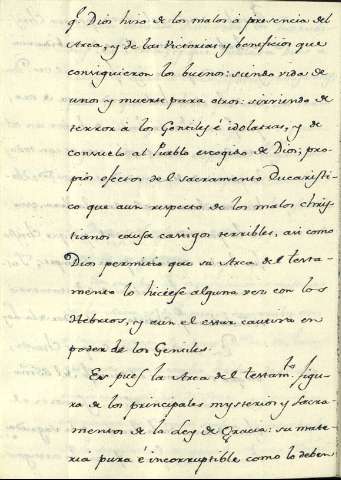 q.e Dios hizo de los malos á presencia del
Arca, y de las Victorias y beneficios que
consiguieron los buenos: siendo vida de
unos y muerte para otros: sirviendo de
terror á los Gentiles é idolatras, y de
consuelo al Pueblo escogido de Dios; pro-
pios efectos del Sacramento Eucaristi-
co que aun respecto de los malos Chris-
tianos causa castigos terribles, asi como
Dios permitio que su Arca del testa-
mento lo hiciese alguna vez con los
Hebreos, y aun el estar cautiva en
poder de los Gentiles.
Es pues la Arca del testam.to figu-
ra de los principales mysterios y Sacra-
mentos de la Ley de Gracia: su mate-
ria pura é incorruptible como lo deben